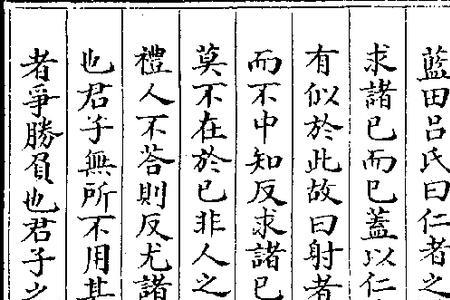 藍田呂氏曰仁者之
求諸已而已蓋以仁
有似於此故曰射者
而不中知反求諸已
莫不在於已非人之
禮人不荅則反尤諸
也君子無所不用其
者爭勝負也君子之